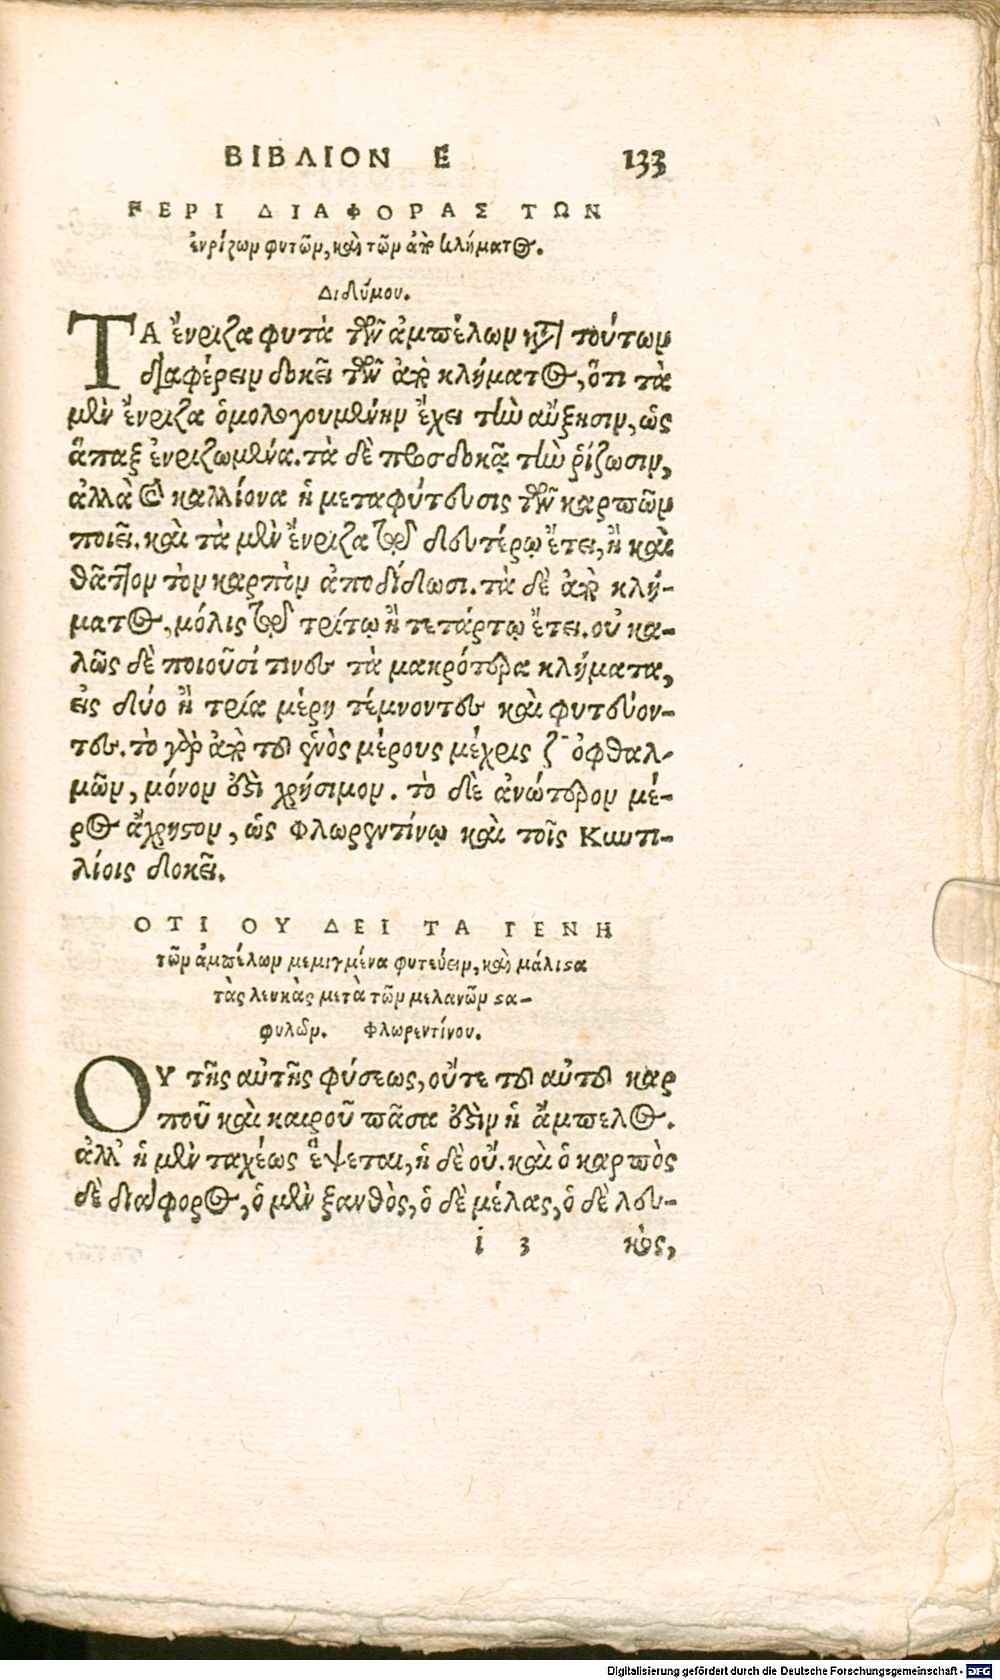 ΒΙΒΛΙΟΝ Ε 133
ΠΕΡΙ ΔΙΑΦΟΡΑΣ ΤΩΝ
ἐνρίζων φυτῶν, καὶ τῶν ἀπὸ κλήματος.
Διδύμου.
ΤΑ ἔνριζα φυτὰ τῶν ἀμπέλων κατὰ τούτων
διαφέρειν δοκεῖ τῶν ἀπὸ κλήματος, ὅτι τὰ
μὲν ἔνριζα ὁμολογουμένην ἔχει τὴν αὔξησιν, ὡς
ἅπαξ ἐνριζωμένα. τὰ δὲ προσδοκᾷ τὴν ῥίζωσιν,
ἀλλὰ καὶ καλλίονα ἡ μεταφύτευσις τῶν καρπῶν
ποιεῖ. καὶ τὰ μὲν ἔνριζα ἐν δευτέρῳ ἔτει, ἢ καὶ
θᾶττον τὸν καρπὸν ἀποδίδωσι. τὰ δὲ ἀπὸ κλή-
ματος, μόλις ἐν τρίτῳ ἢ τετάρτῳ ἔτει. οὐ κα-
λῶς δὲ ποιοῦσί τινες τὰ μακρότερα κλήματα,
εἰς δύο ἢ τρία μέρη τέμνοντες καὶ φυτεύον-
τες. τὸ γὰρ ἀπὸ τοῦ ἑνὸς μέρους μέχρις ζ ὀφθαλ-
μῶν, μόνον ἐστὶ χρήσιμον. τὸ δὲ ἀνώτερον μέ-
ρος ἄχρηστον, ὡς Φλωρεντίνῳ καὶ τοῖς Κυντι-
λίοις δοκεῖ.
ΟΤΙ ΟΥ ΔΕΙ ΤΑ ΓΕΝΗ
τῶν ἀμπέλων μεμιγμένα φυτεύειν, καὶ μάλιστα
τὰς λευκὰς μετὰ τῶν μελανῶν στα-
φυλῶν. Φλωρεντίνου.
ΟΥ τῆς αὐτῆς φύσεως, οὔτε τοῦ αὐτοῦ καρ
ποῦ καὶ καιροῦ πᾶσα ἐστὶν ἡ ἄμπελος.
ἀλλ' ἡ μὲν ταχέως ἕψεται, ἡ δὲ οὔ. καὶ ὁ καρπὸς
δὲ διάφορος, ὁ μὲν ξανθὸς, ὁ δὲ μέλας, ὁ δὲ λευ-
i 3 κὸς,
Digitalisierung gefördert durch die Deutsche Forschungsgemeinschaft - DFG